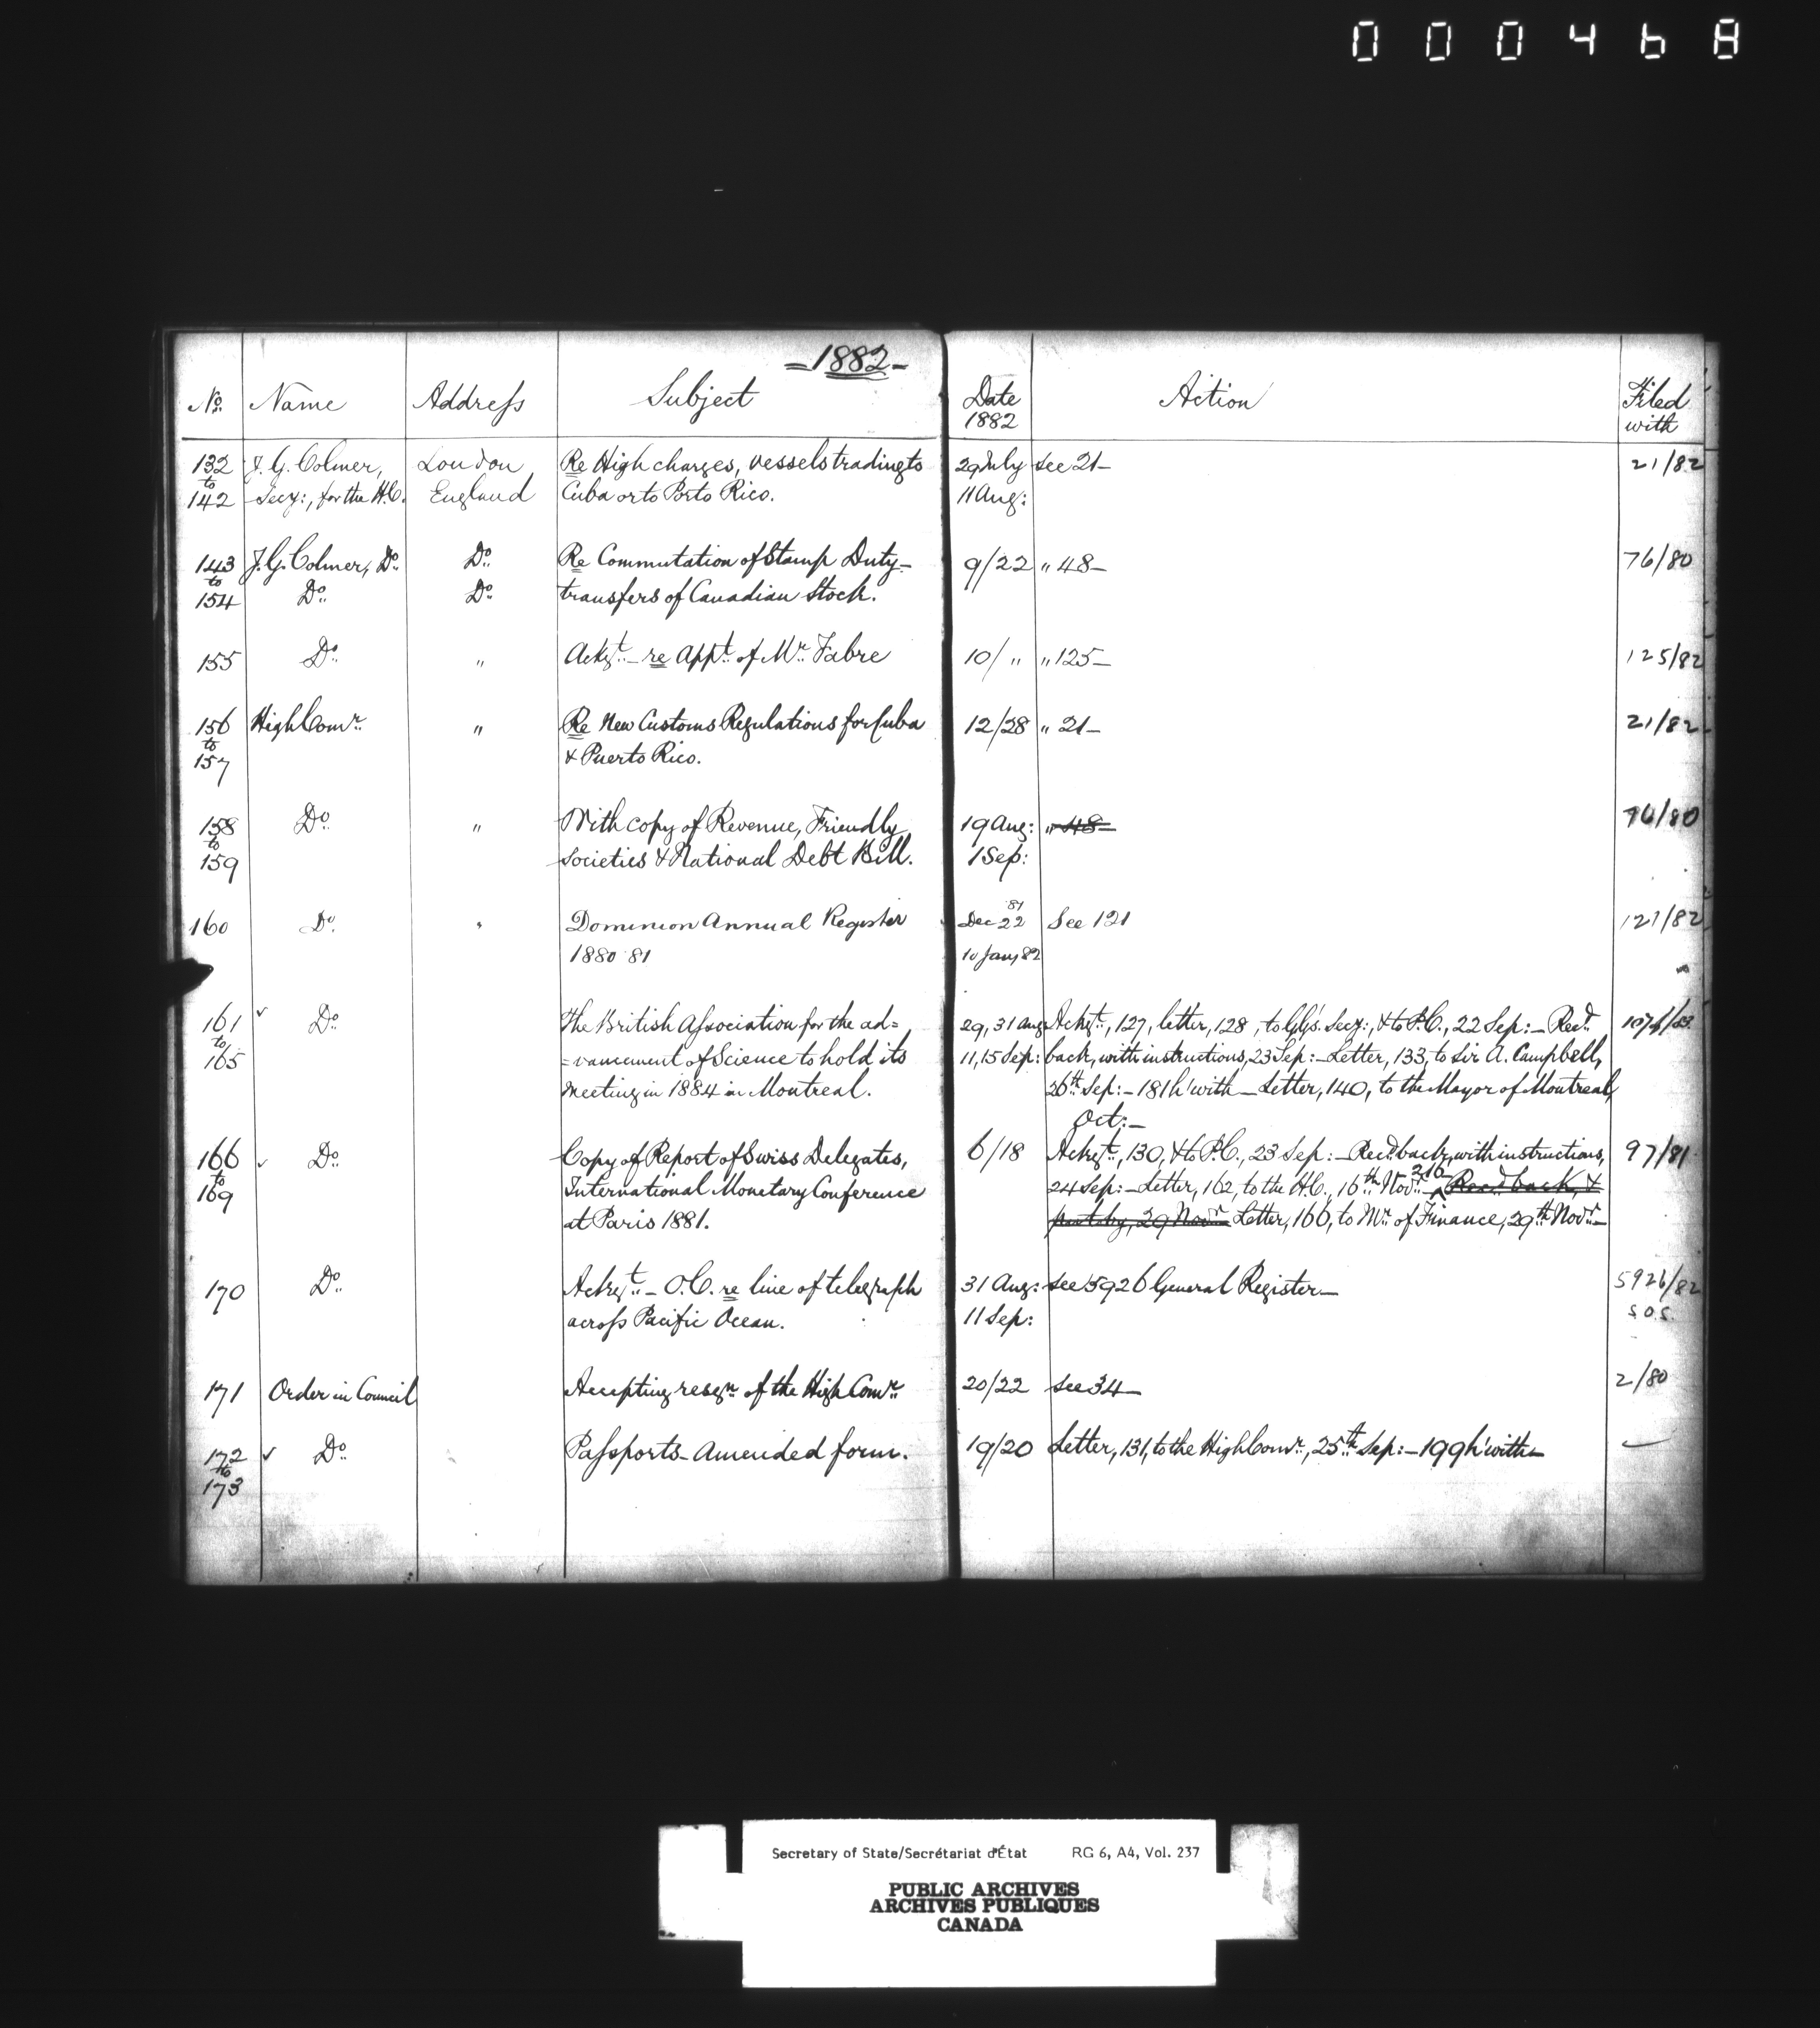 000468
=1882=
No. Name Address Subject Date 1882 Action Filed with
132 to 142 J. G. Colmer, London Re High charges, vessels trading to 29 July see 21- 21/82
Secy:, for the H.C. England Cuba or to Porto Rico. 11 Aug:
143 to 154 J. G. Colmer, Do. Do. Re Commutation of Stamp Duty- 9/22 " 48- 76/80
Do. Do. transfers of Canadian Stock.
155 Do. " Ackgt. - re Appt. of Mr. Fabre 10/ " " 125- 125/82
156 to 157 High Comr. " Re New Customs Regulations for Cuba 12/28 " 21- 21/82
& Puerto Rico.
158 to 159 Do. " With copy of Revenue, Friendly 19 Aug: " 48- 76/80
Societies & National Debt Bill. 1 Sep:
160 Do. " Dominion Annual Register Dec 22 '81 See 121 121/82
1880 81 10 Jany 82
161 to 165 Do. The British Association for the ad= 29, 31 Aug Ackgt., 127, letter, 128, to GG's. Secy:, & to P.C., 22 Sep:- Recd.
=vancement of Science to hold its 11, 15 Sep: back, with instructions, 23 Sep:- Letter, 133, to Sir A. Campbell,
meeting in 1884 in Montreal. 26th Sep:- 181 h'with - Letter, 140, to the Mayor of Montreal,
Oct:-
166 to 169 Do. Copy of Report of Swiss Delegates, 6/18 Ackgt., 130, & to P.C., 23 Sep:- Recd. back, with instructions, 97/81
International Monetary Conference 24 Sep:- Letter, 162, to the H.C., 16th Novr. - 216 Recd back, &
at Paris 1881. put by, 29 Novr. Letter, 166, to Mr. of Finance, 29th Novr.-
170 Do. Ackgt. - O.C. re line of telegraph 31 Aug: see 5926 General Register- 5926/82
across Pacific Ocean. 11 Sep: S.O.S.
171 Order in Council Accepting resgn. of the High Comr. 20/22 see 34- 2/80
172 to 173 Do. Passports - Amended form. 19/20 Letter, 131, to the High Comr., 25th Sep:- 199 h'with-
Secretary of State/Secrétariat d'État RG 6, A4, Vol. 237
PUBLIC ARCHIVES
ARCHIVES PUBLIQUES
CANADA